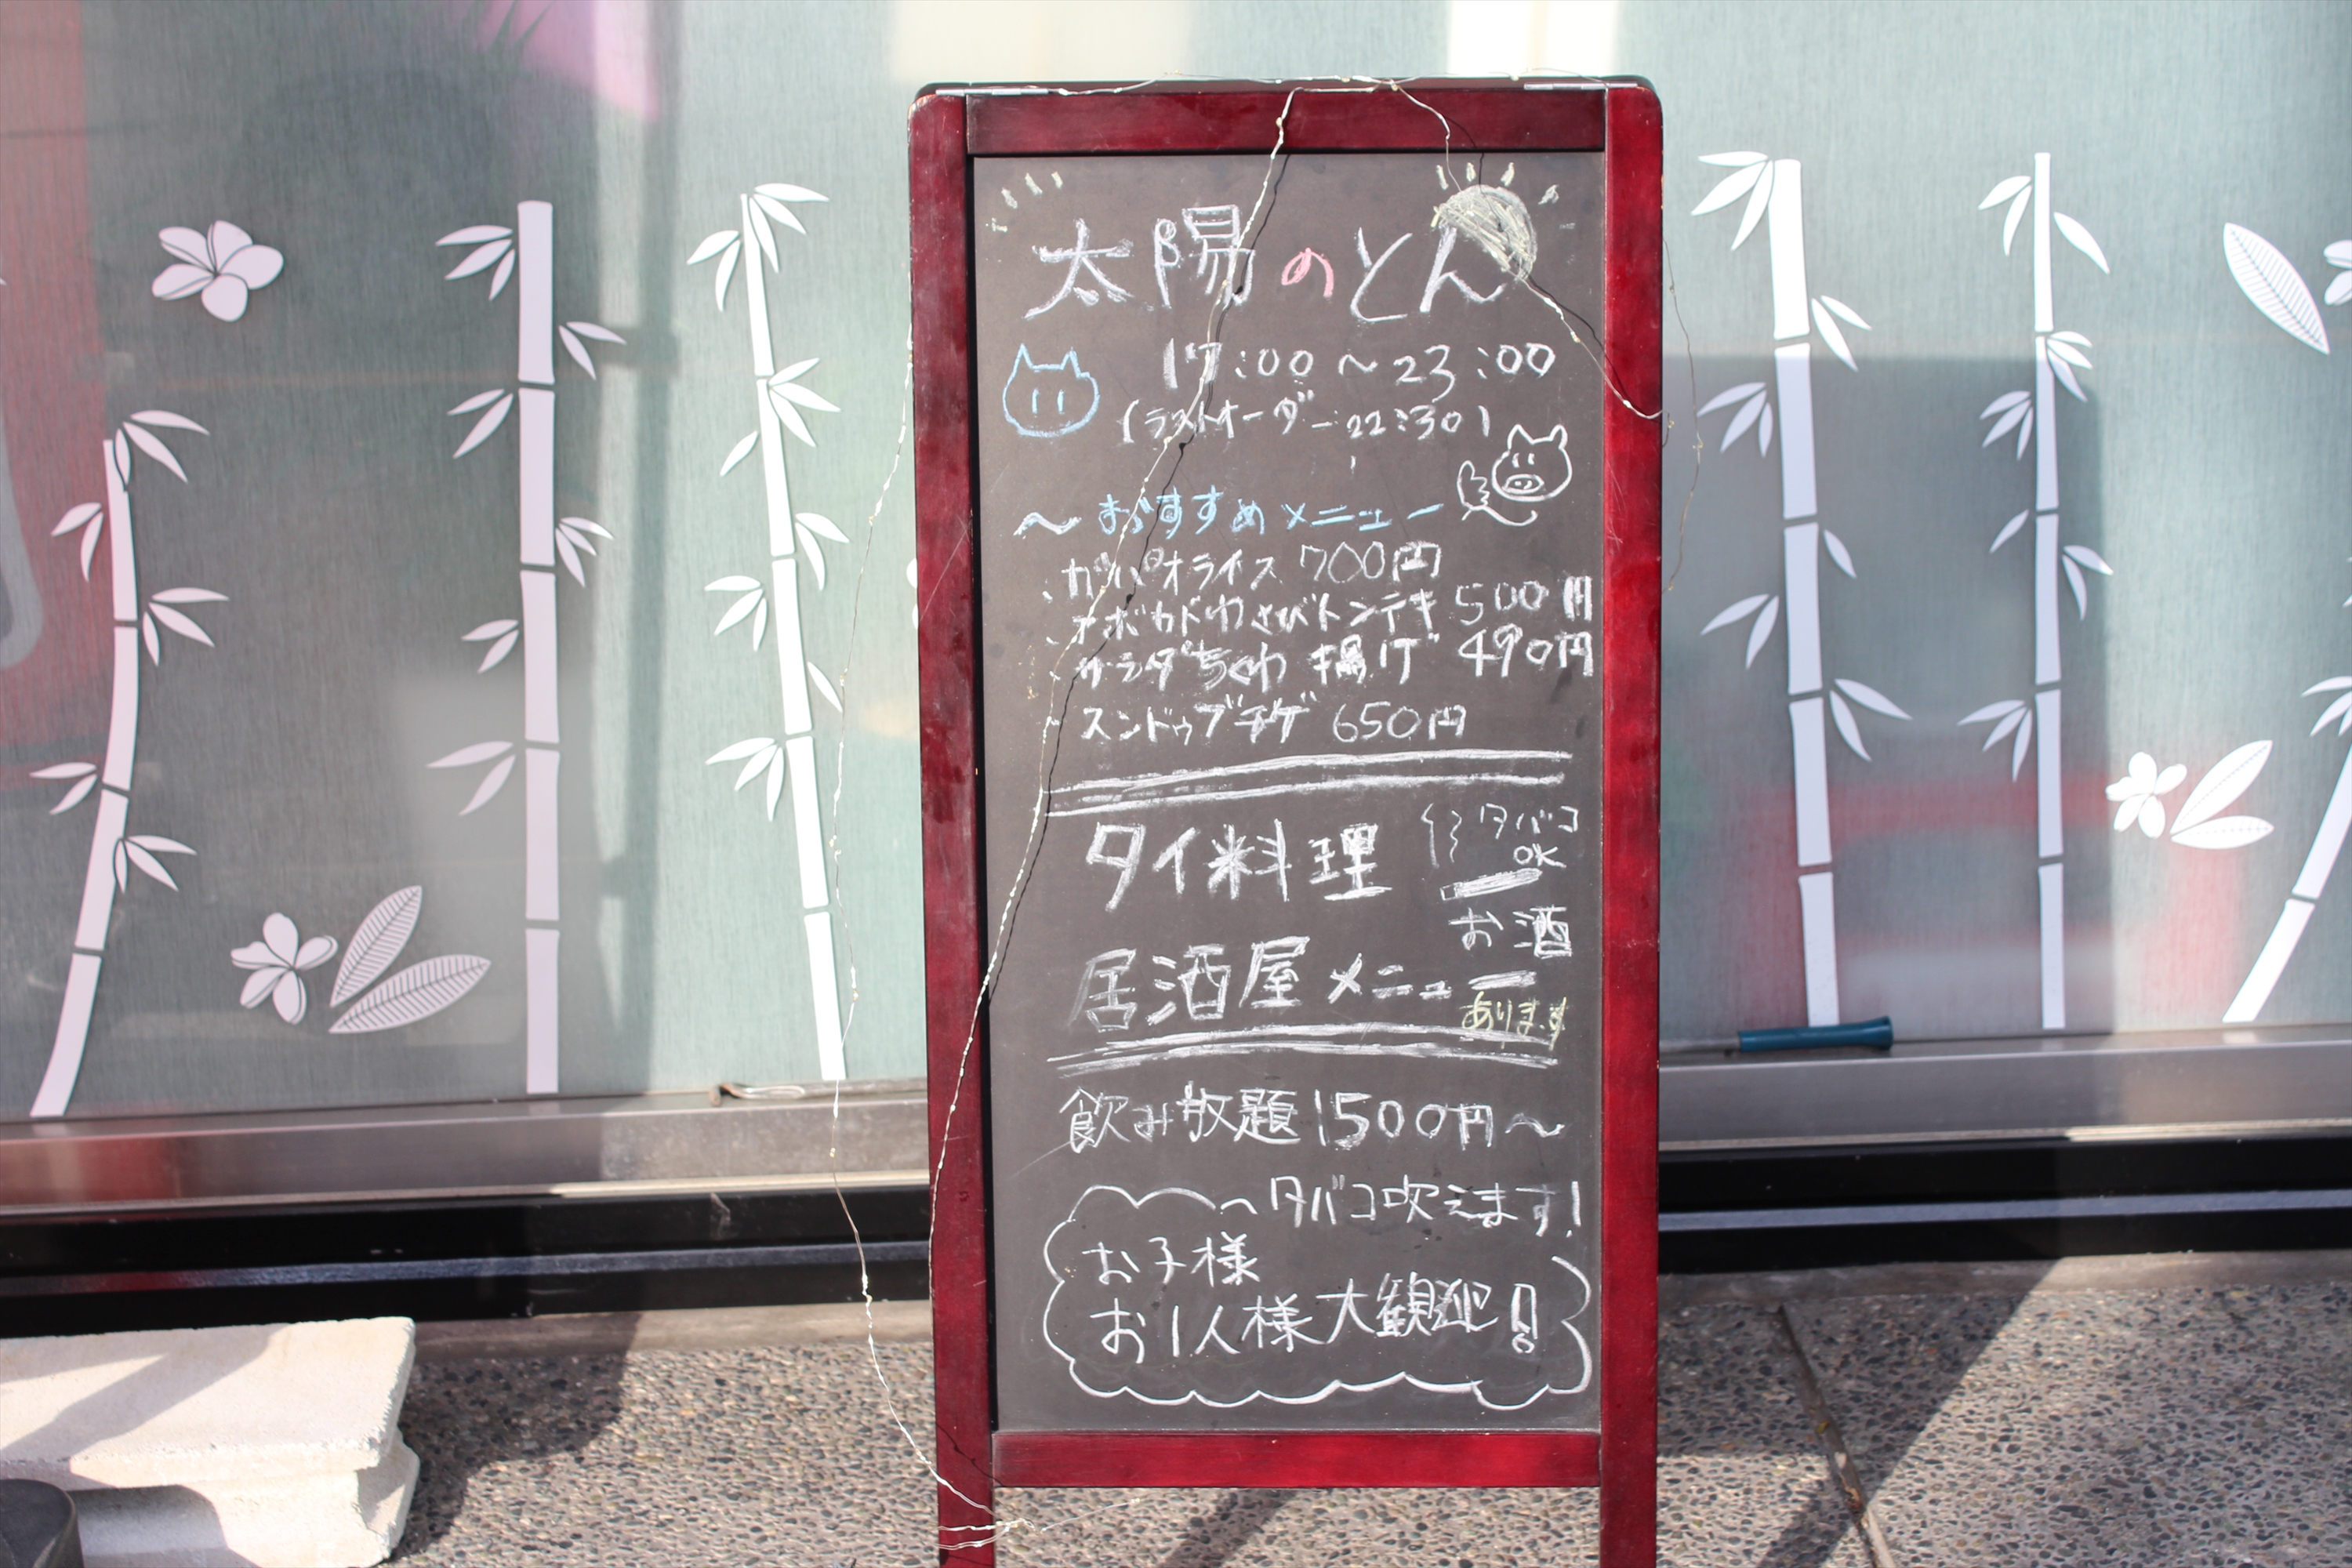 太陽のとん
17:00〜23:00
(ラストオーダー 22:30)
〜おすすめメニュー
・ガパオライス 700円
・アボカドわさびトンテキ 500円
・サラダちくわ揚げ 490円
・スンドゥブチゲ 650円
タイ料理
タバコ
OK
お酒
居酒屋メニュー
あります
飲み放題1500円〜
〜タバコ吹えます!
お子様
お1人様大歓迎!